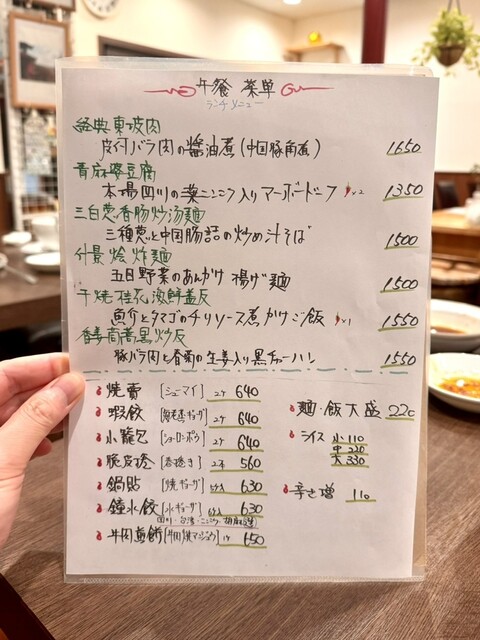 午餐 菜単
ランチメニュー
経典東坡肉
皮付バラ肉の醤油煮(中国豚角煮) 1650
青麻婆豆腐
本場四川の葉ニンニク入りマーボードーフ ×2 1350
三白葱香腸炒汤麺
三種葱と中国腸詰の炒め汁そば 1500
什景烩炸麺
五目野菜のあんかけ 揚げ麺 1500
干焼桂花海鮮盖反
魚介とタマゴのチリソース煮かけご飯 ×1 1550
香茼蒿黒炒反
豚バラ肉と春菊の生姜入り黒チャーハン 1550
焼賣 [シューマイ] 2ケ 640
蝦餃 [海老蒸ギョーザ] 2ケ 640
小籠包 [ショーロンポウ] 2ケ 640
脆皮捲 [春捲き] 2本 560
鍋貼 [焼ギョーザ] 630
鐘水餃 [水ギョーザ] 630
牛肉蔥餅 1ケ 650
麺・飯大盛 220
ライス 小110
中220
大330
辛さ増 110